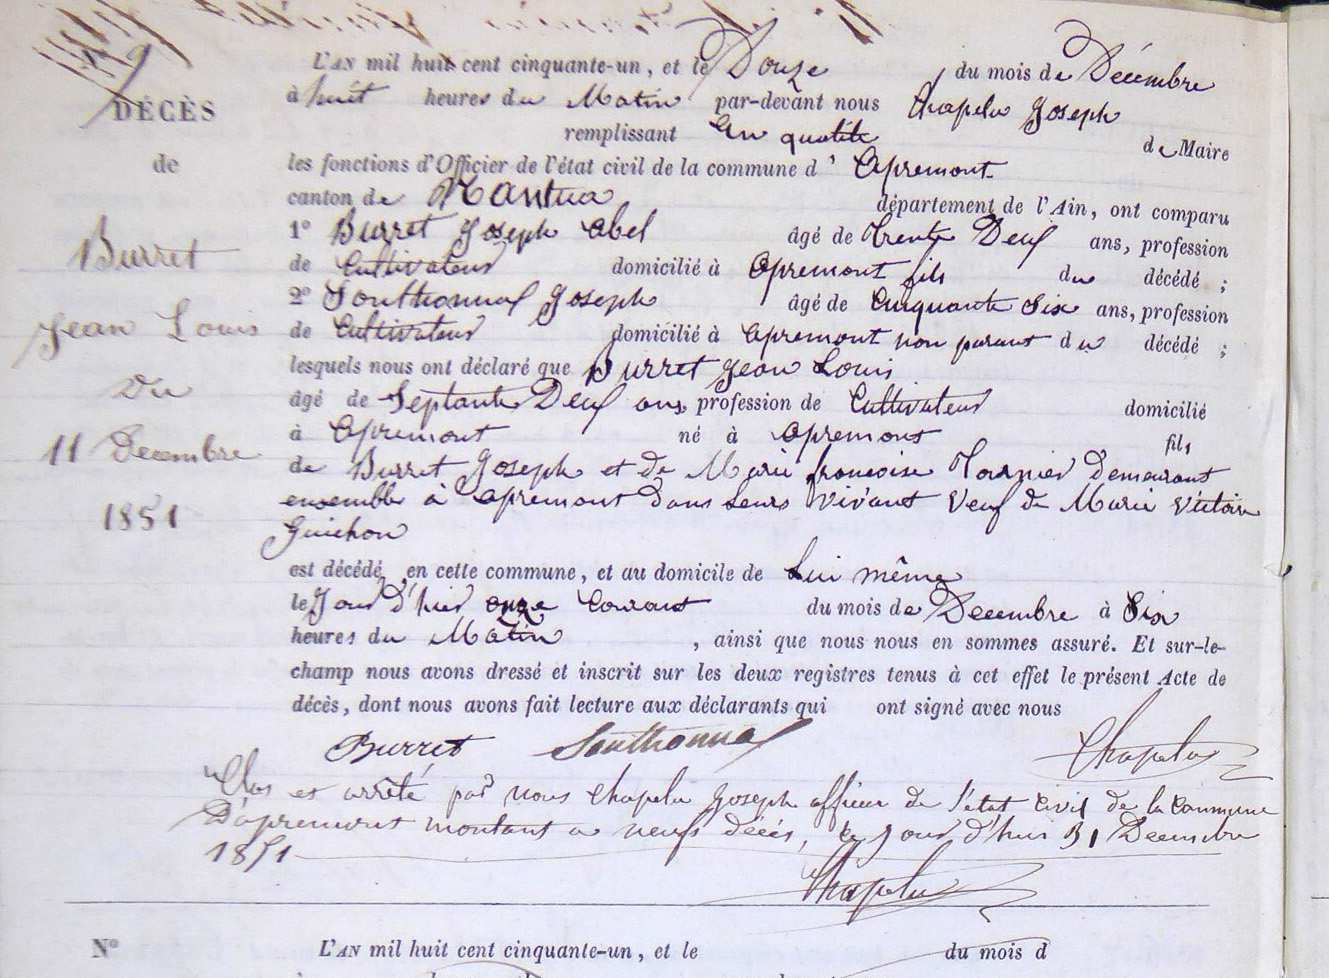 9
DÉCÈS
de
Burret
Jean Louis
Du
11 Decembre
1851
L'AN mil huit cent cinquante-un, et le Douze du mois de Décembre
à huit heures du Matin par-devant nous Chapelu Joseph
remplissant En qualité de Maire
les fonctions d'Officier de l'état civil de la commune d' Apremont
canton de Nantua département de l'Ain, ont comparu
1° Burret Joseph Abel âgé de Trente Deux ans, profession
de Cultivateur domicilié à Apremont fils du décédé ;
2° Sonthonnax Joseph âgé de Cinquante Six ans, profession
de Cultivateur domicilié à Apremont non parant du décédé ;
lesquels nous ont déclaré que Burret Jean Louis
âgé de Septante Deux ans, profession de Cultivateur domicilié
à Apremont né à Apremont fils
de Burret Joseph et de Marie francoise Tournier Demeurant
ensemble à Apremont Dans Leurs Vivant Veuf de Marie Victoire
Guichon
est décédé en cette commune, et au domicile de Lui même
le Jour d'hier onze Courant du mois de Decembre à Six
heures du Matin, ainsi que nous nous en sommes assuré. Et sur-le-
champ nous avons dressé et inscrit sur les deux registres tenus à cet effet le présent Acte de
décès, dont nous avons fait lecture aux déclarants qui ont signé avec nous
Burret Sonthonnax Chapelu
Clos et arrêté par nous Chapelu Joseph officier de l'état Civil de la Commune
D'apremont montant a neufs décés, Ce jour d'hui 31 Decembre
1851
Chapelu
N° L'AN mil huit cent cinquante-un, et le du mois d